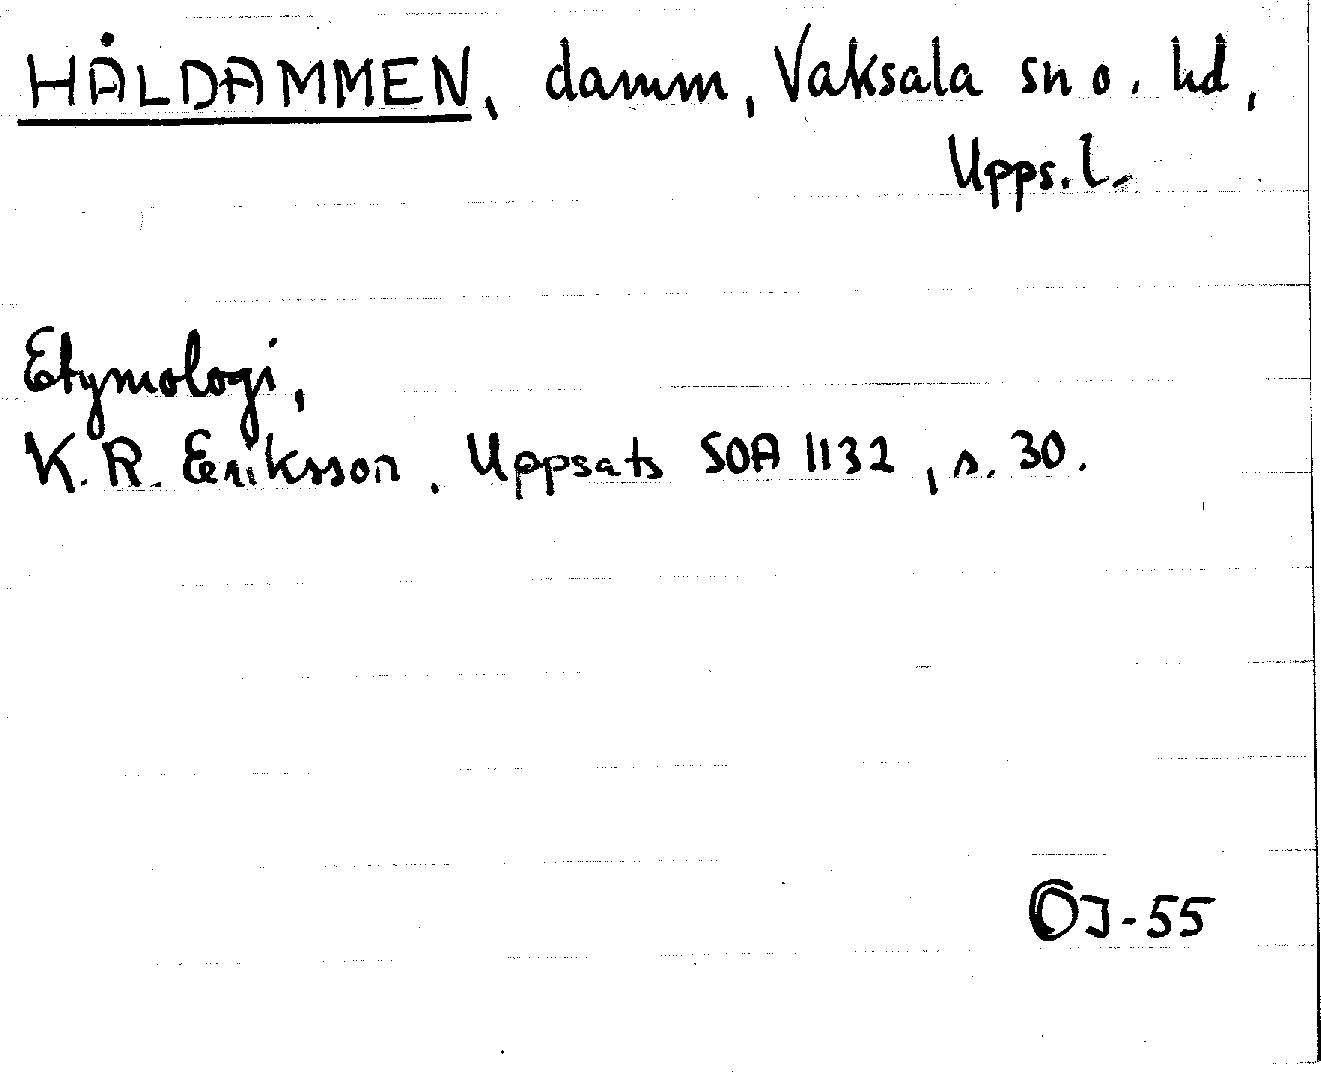 HÅLDAMMEN, damm, Vaksala sn o. hd,
Upps. l.
Etymologi,
K. R. Eriksson. Uppsats SOA 1132, s. 30.
OJ-55